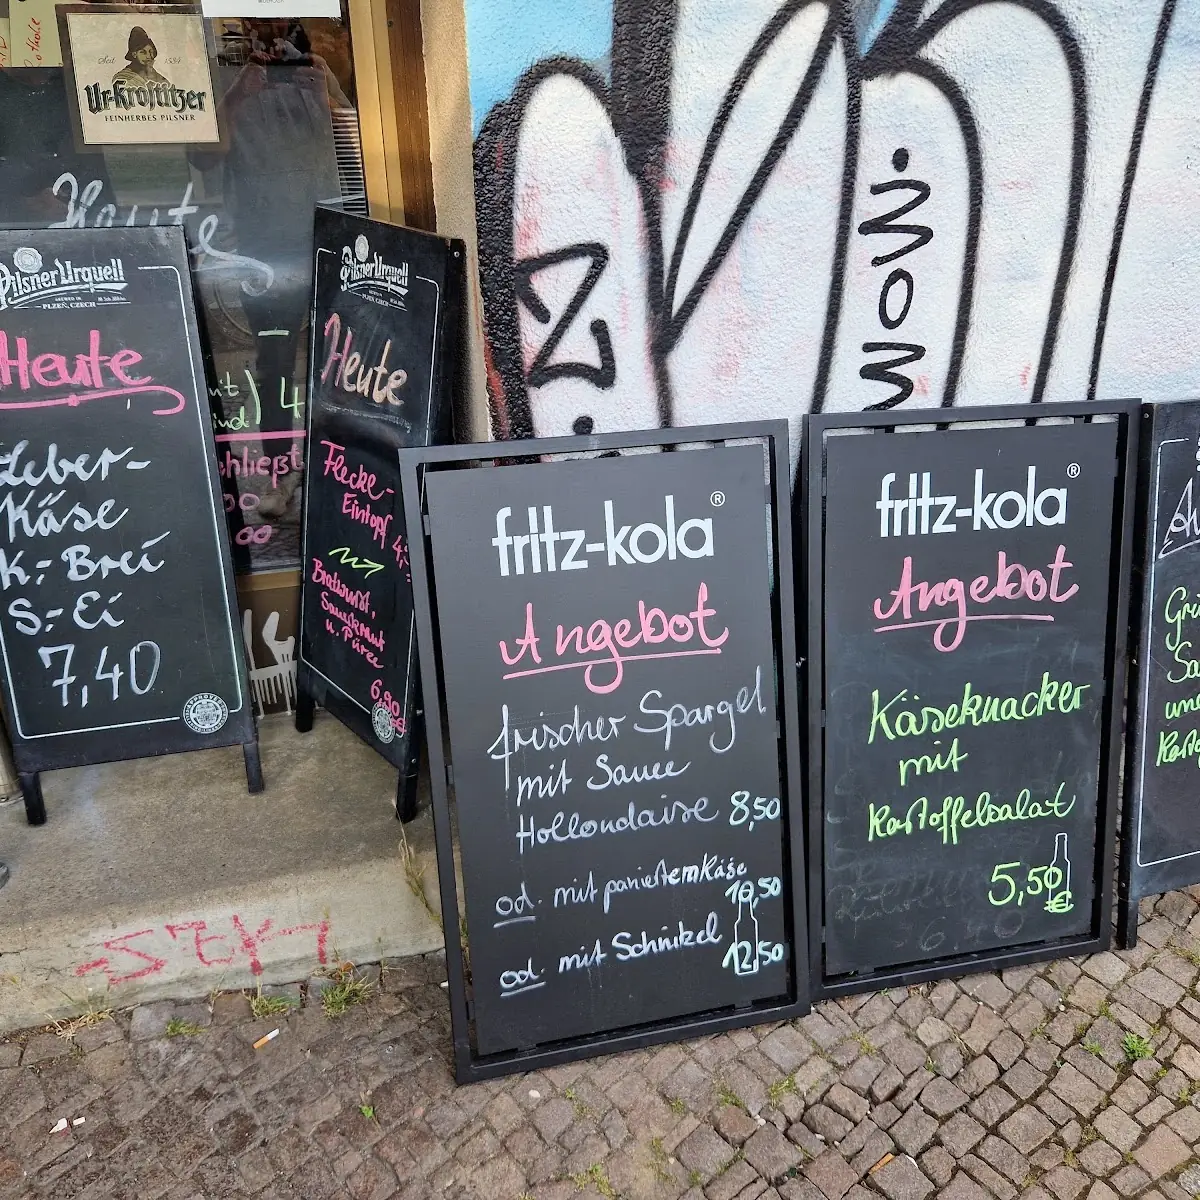 Seit 1534
Ur-Krostitzer
FEINHERBES PILSNER
Heute
Pilsner Urquell
BREWED IN
PLZEŇ, CZECH
Heute
Leber-
Käse
K.- Brei
S.- Ei
7,40
4
Pilsner Urquell
PLZEŇ, CZECH
Heute
Flecke-
Eintopf 4,-
Bratwurst,
Sauerkraut
u. Püree
6,90 €
fritz-kola®
Angebot
frischer Spargel
mit Sauce
Hollondaise 8,50
od. mit paniertem Käse
10,50
od. mit Schnitzel
12,50
fritz-kola®
Angebot
Käseknacker
mit
Kartoffelsalat
5,50
€